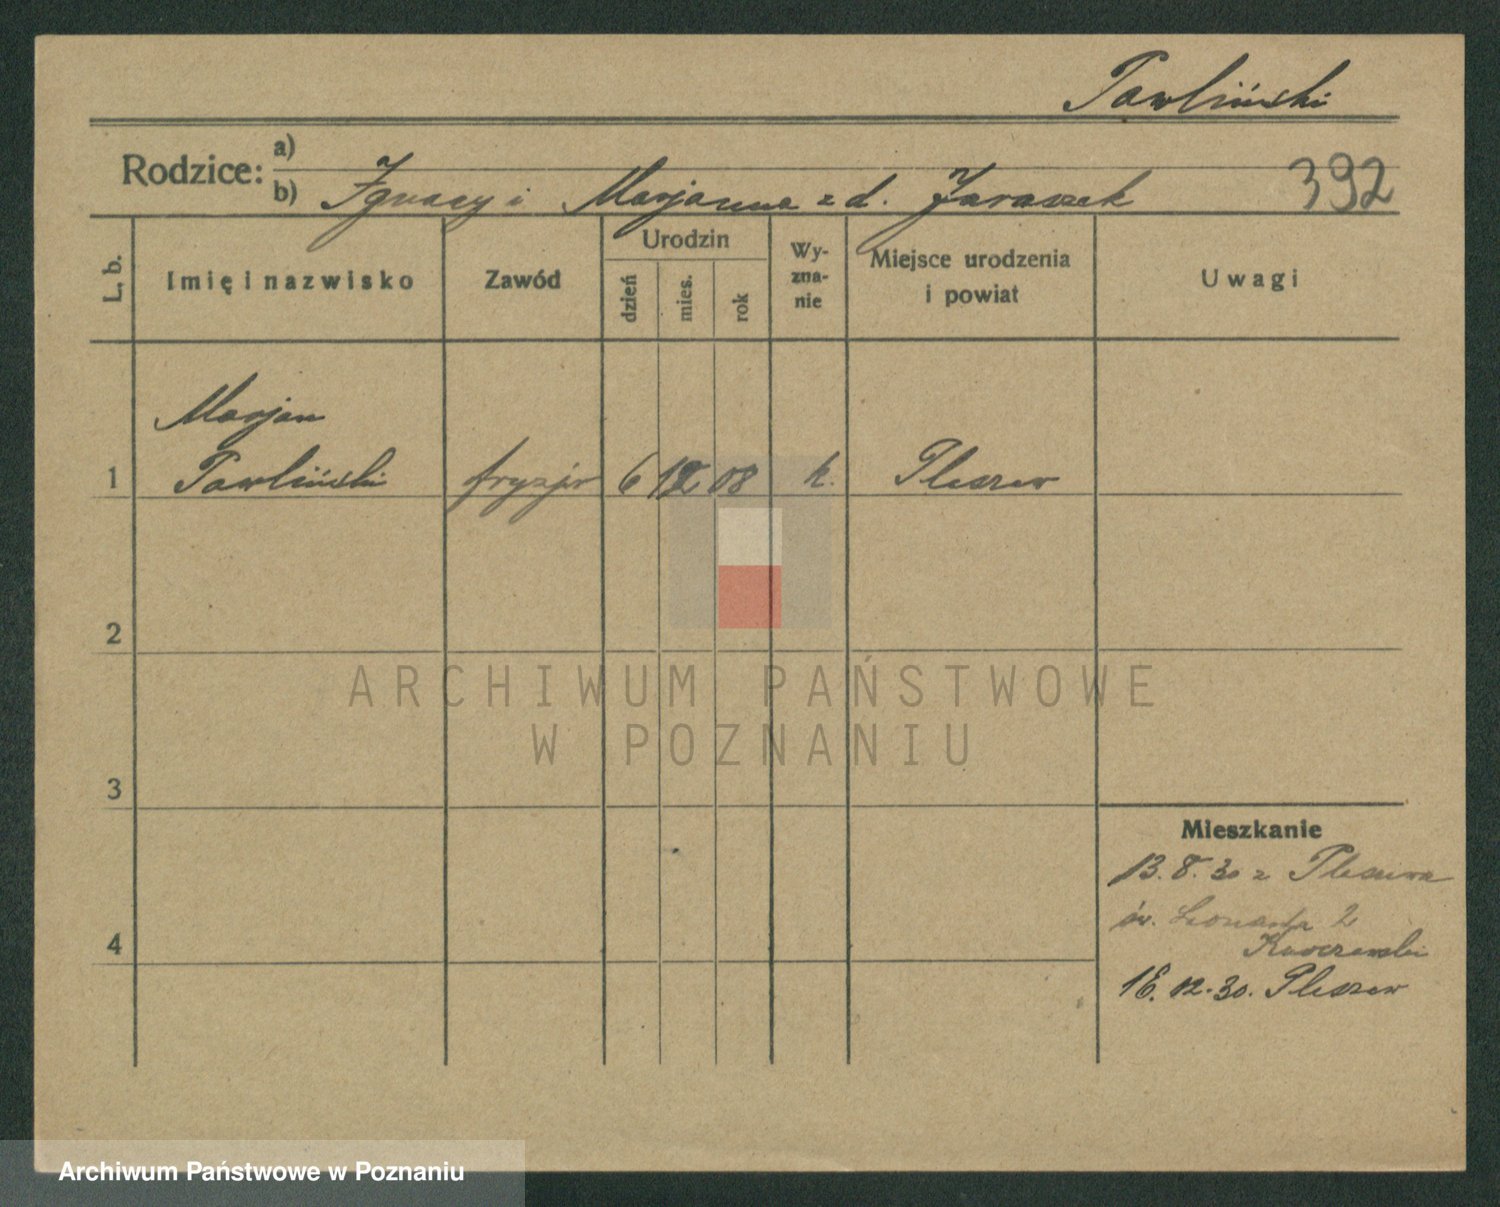 Pawliński
Rodzice: a)
b) Ignacy i Marjanna z d. Jaraszek
392
L. b.
Imię i nazwisko
Zawód
Urodzin
dzień
mies.
rok
Wy-
zna-
nie
Miejsce urodzenia
i powiat
Uwagi
Marjan
1 Pawliński fryzjer 6 12 08 k. Pleszew
2
ARCHIWUM PAŃSTWOWE
W POZNANIU
3
Mieszkanie
13.8.30 z Pleszewa
św. 2
4
16.12.30. Pleszew
Archiwum Państwowe w Poznaniu